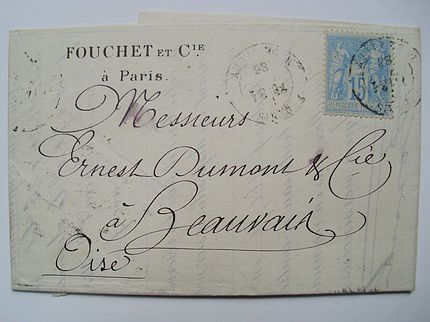 FOUCHET ET CIE
à Paris.
Messieurs
Ernest Dumont & Cie
à Beauvais
Oise
15